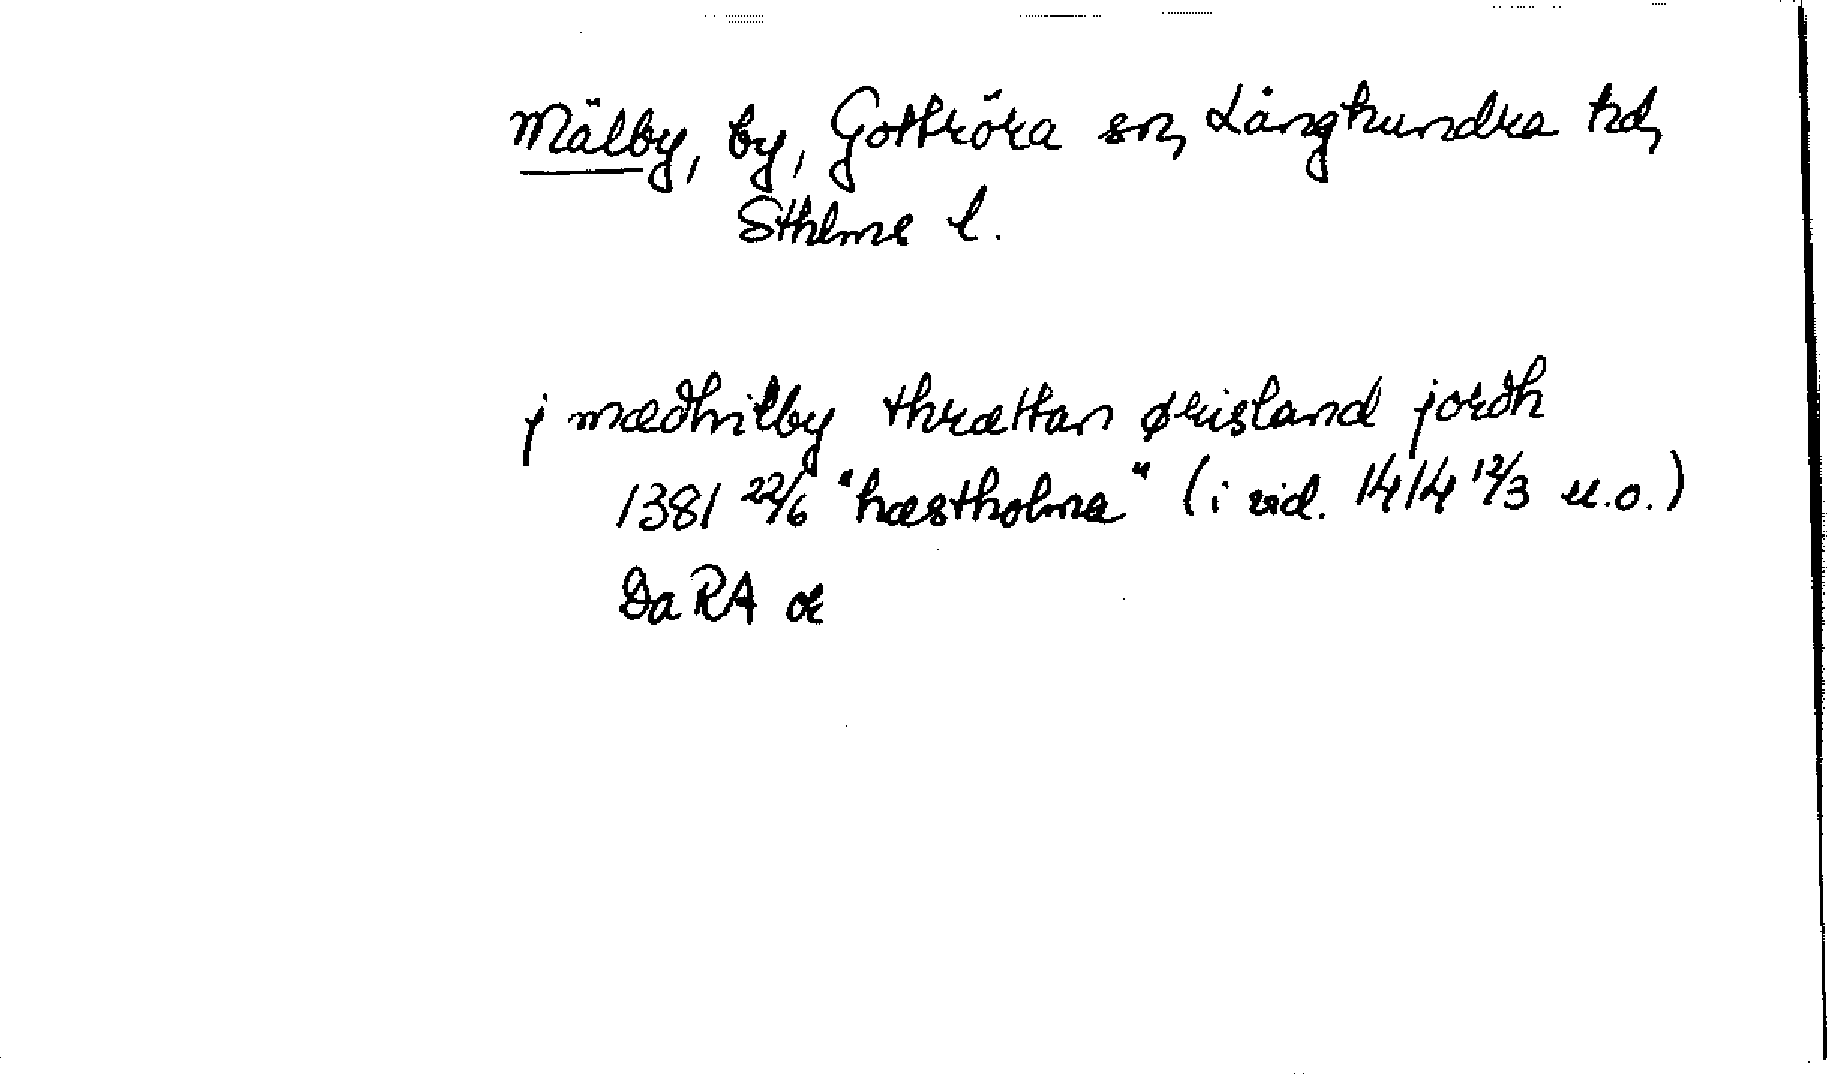 Mälby, by, Gottröra sn, Långhundra hd,
Sthlms l.
j mædhilby thrættan ørisland jordh
1381 22/6 "hæstholma" (i vid. 1414 12/3 u.o.)
DaRA or